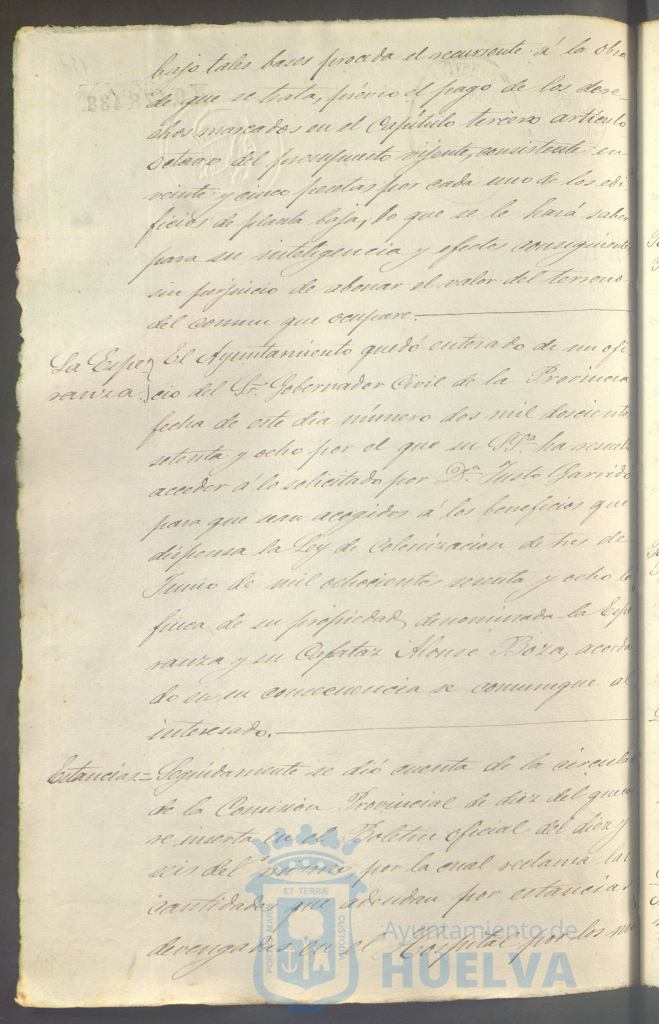 bajo tales bases proceda el recurrente á la obra
de que se trata, prévio el pago de los dere-
chos marcados en el Capítulo tercero artículo
octavo del presupuesto vijente, consistente en
veinte y cinco pesetas por cada uno de los edi
ficios de planta baja, lo que se le hará saber
para su inteligencia y efectos consiguientes
sin perjuicio de abonar el valor del terreno
del comun que ocupare.
La Espe El Ayuntamiento quedó enterado de un ofi
ranza. cio del Sr. Gobernador Civil de la Provincia
fecha de este dia número dos mil doscientos
setenta y ocho por el que su Sª ha resuelto
acceder á lo solicitado por D.ⁿ Justo Garrido
para que sean acogidos á los beneficios que
dispensa la Ley de Colonizacion de tres de
Junio de mil ochocientos sesenta y ocho la
finca de su propiedad denominada la Espe
ranza y su Capataz Alonso Boza, acorda
do en su consecuencia se comunique al
interesado.
Estancias = Seguidamente se dió cuenta de la circular
de la Comision Provincial de diez del que
se inserta en el Boletin oficial del diez y
seis del mismo, por la cual reclama las
cantidades que adeudan por estancias
devengadas en el Hospital por los
ET TERRÆ
PORTUS MARIS
CUSTODIA
Ayuntamiento de
HUELVA